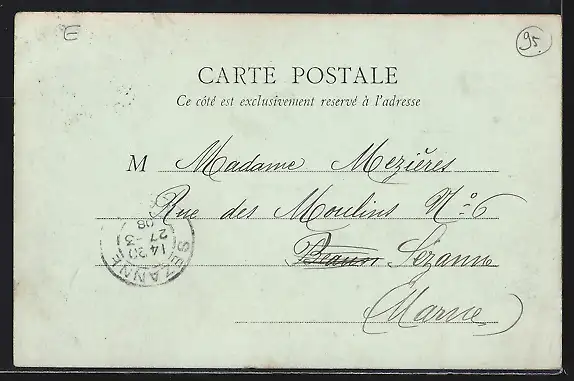 E
95
CARTE POSTALE
Ce côté est exclusivement reservé à l'adresse
M Madame Mezières
Rue des Moulins No 6
Sézanne
(Marne)
SÉZANNE
14 30
27 - 3
08